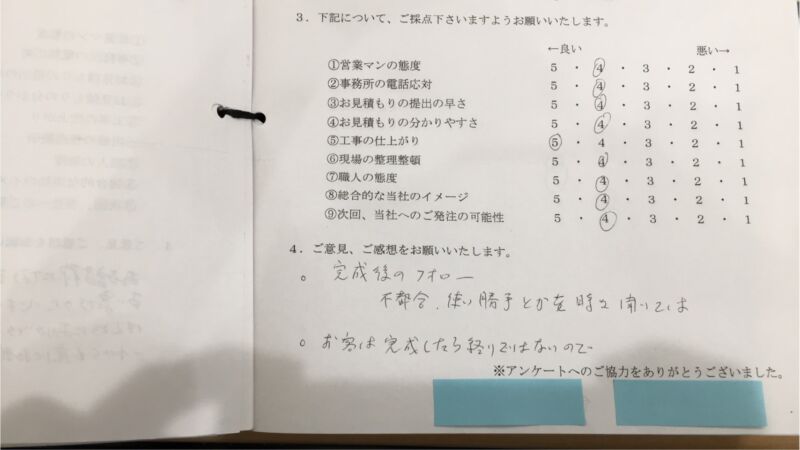 3．下記について、ご採点下さいますようお願いいたします。
←良い 悪い→
①営業マンの態度 5 ・ 4 ・ 3 ・ 2 ・ 1
②事務所の電話応対 5 ・ 4 ・ 3 ・ 2 ・ 1
③お見積もりの提出の早さ 5 ・ 4 ・ 3 ・ 2 ・ 1
④お見積もりの分かりやすさ 5 ・ 4 ・ 3 ・ 2 ・ 1
⑤工事の仕上がり 5 ・ 4 ・ 3 ・ 2 ・ 1
⑥現場の整理整頓 5 ・ 4 ・ 3 ・ 2 ・ 1
⑦職人の態度 5 ・ 4 ・ 3 ・ 2 ・ 1
⑧総合的な当社のイメージ 5 ・ 4 ・ 3 ・ 2 ・ 1
⑨次回、当社へのご発注の可能性 5 ・ 4 ・ 3 ・ 2 ・ 1
4．ご意見、ご感想をお願いいたします。
○ 完成後のフォロー
不都合、使い勝手とかを時々聞いては
○ お客は完成したら終りではないので
※アンケートへのご協力をありがとうございました。